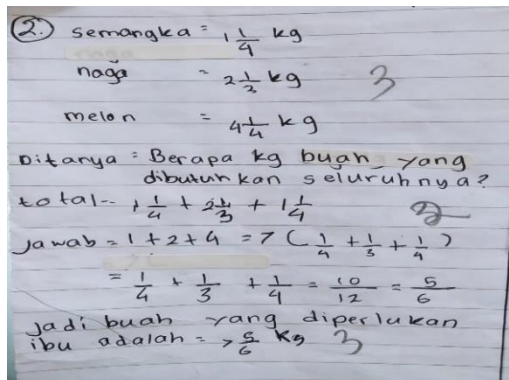 2. semangka = 1 1/4 kg
naga = 2 1/3 kg 3
melon = 4 1/4 kg
Ditanya = Berapa kg buah yang
dibutuhkan seluruhnya?
total-- 1 1/4 + 2 1/3 + 1 1/4 2
Jawab = 1 + 2 + 4 = 7 ( 1/4 + 1/3 + 1/4 )
= 1/4 + 1/3 + 1/4 = 10/12 = 5/6
Jadi buah yang diperlukan
ibu adalah = 7 5/6 Kg 3